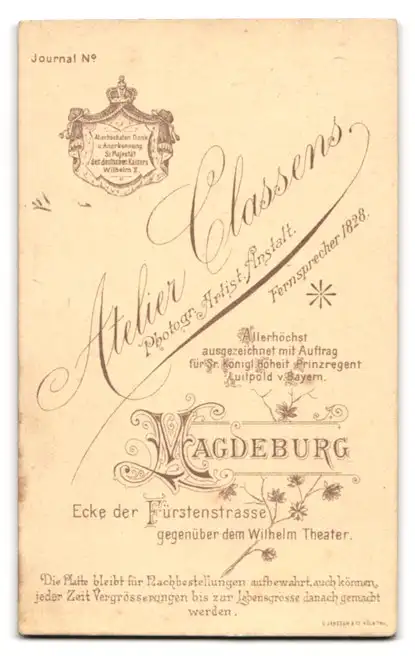 Journal Nº
Allerhöchsten Dank
u. Anerkennung
Sr Majestät
des deutschen Kaisers
Wilhelm II.
Atelier Classens.
Photogr. Artist. Anstalt.
Fernsprecher 1828.
Allerhöchst
ausgezeichnet mit Auftrag
für Sr. Königl. Hoheit Prinzregent
Luitpold v. Bayern.
MAGDEBURG
Ecke der Fürstenstrasse
gegenüber dem Wilhelm Theater.
Die Platte bleibt für Nachbestellungen aufbewahrt, auch können
jeder Zeit Vergrösserungen bis zur Lebensgrösse danach gemacht
werden.